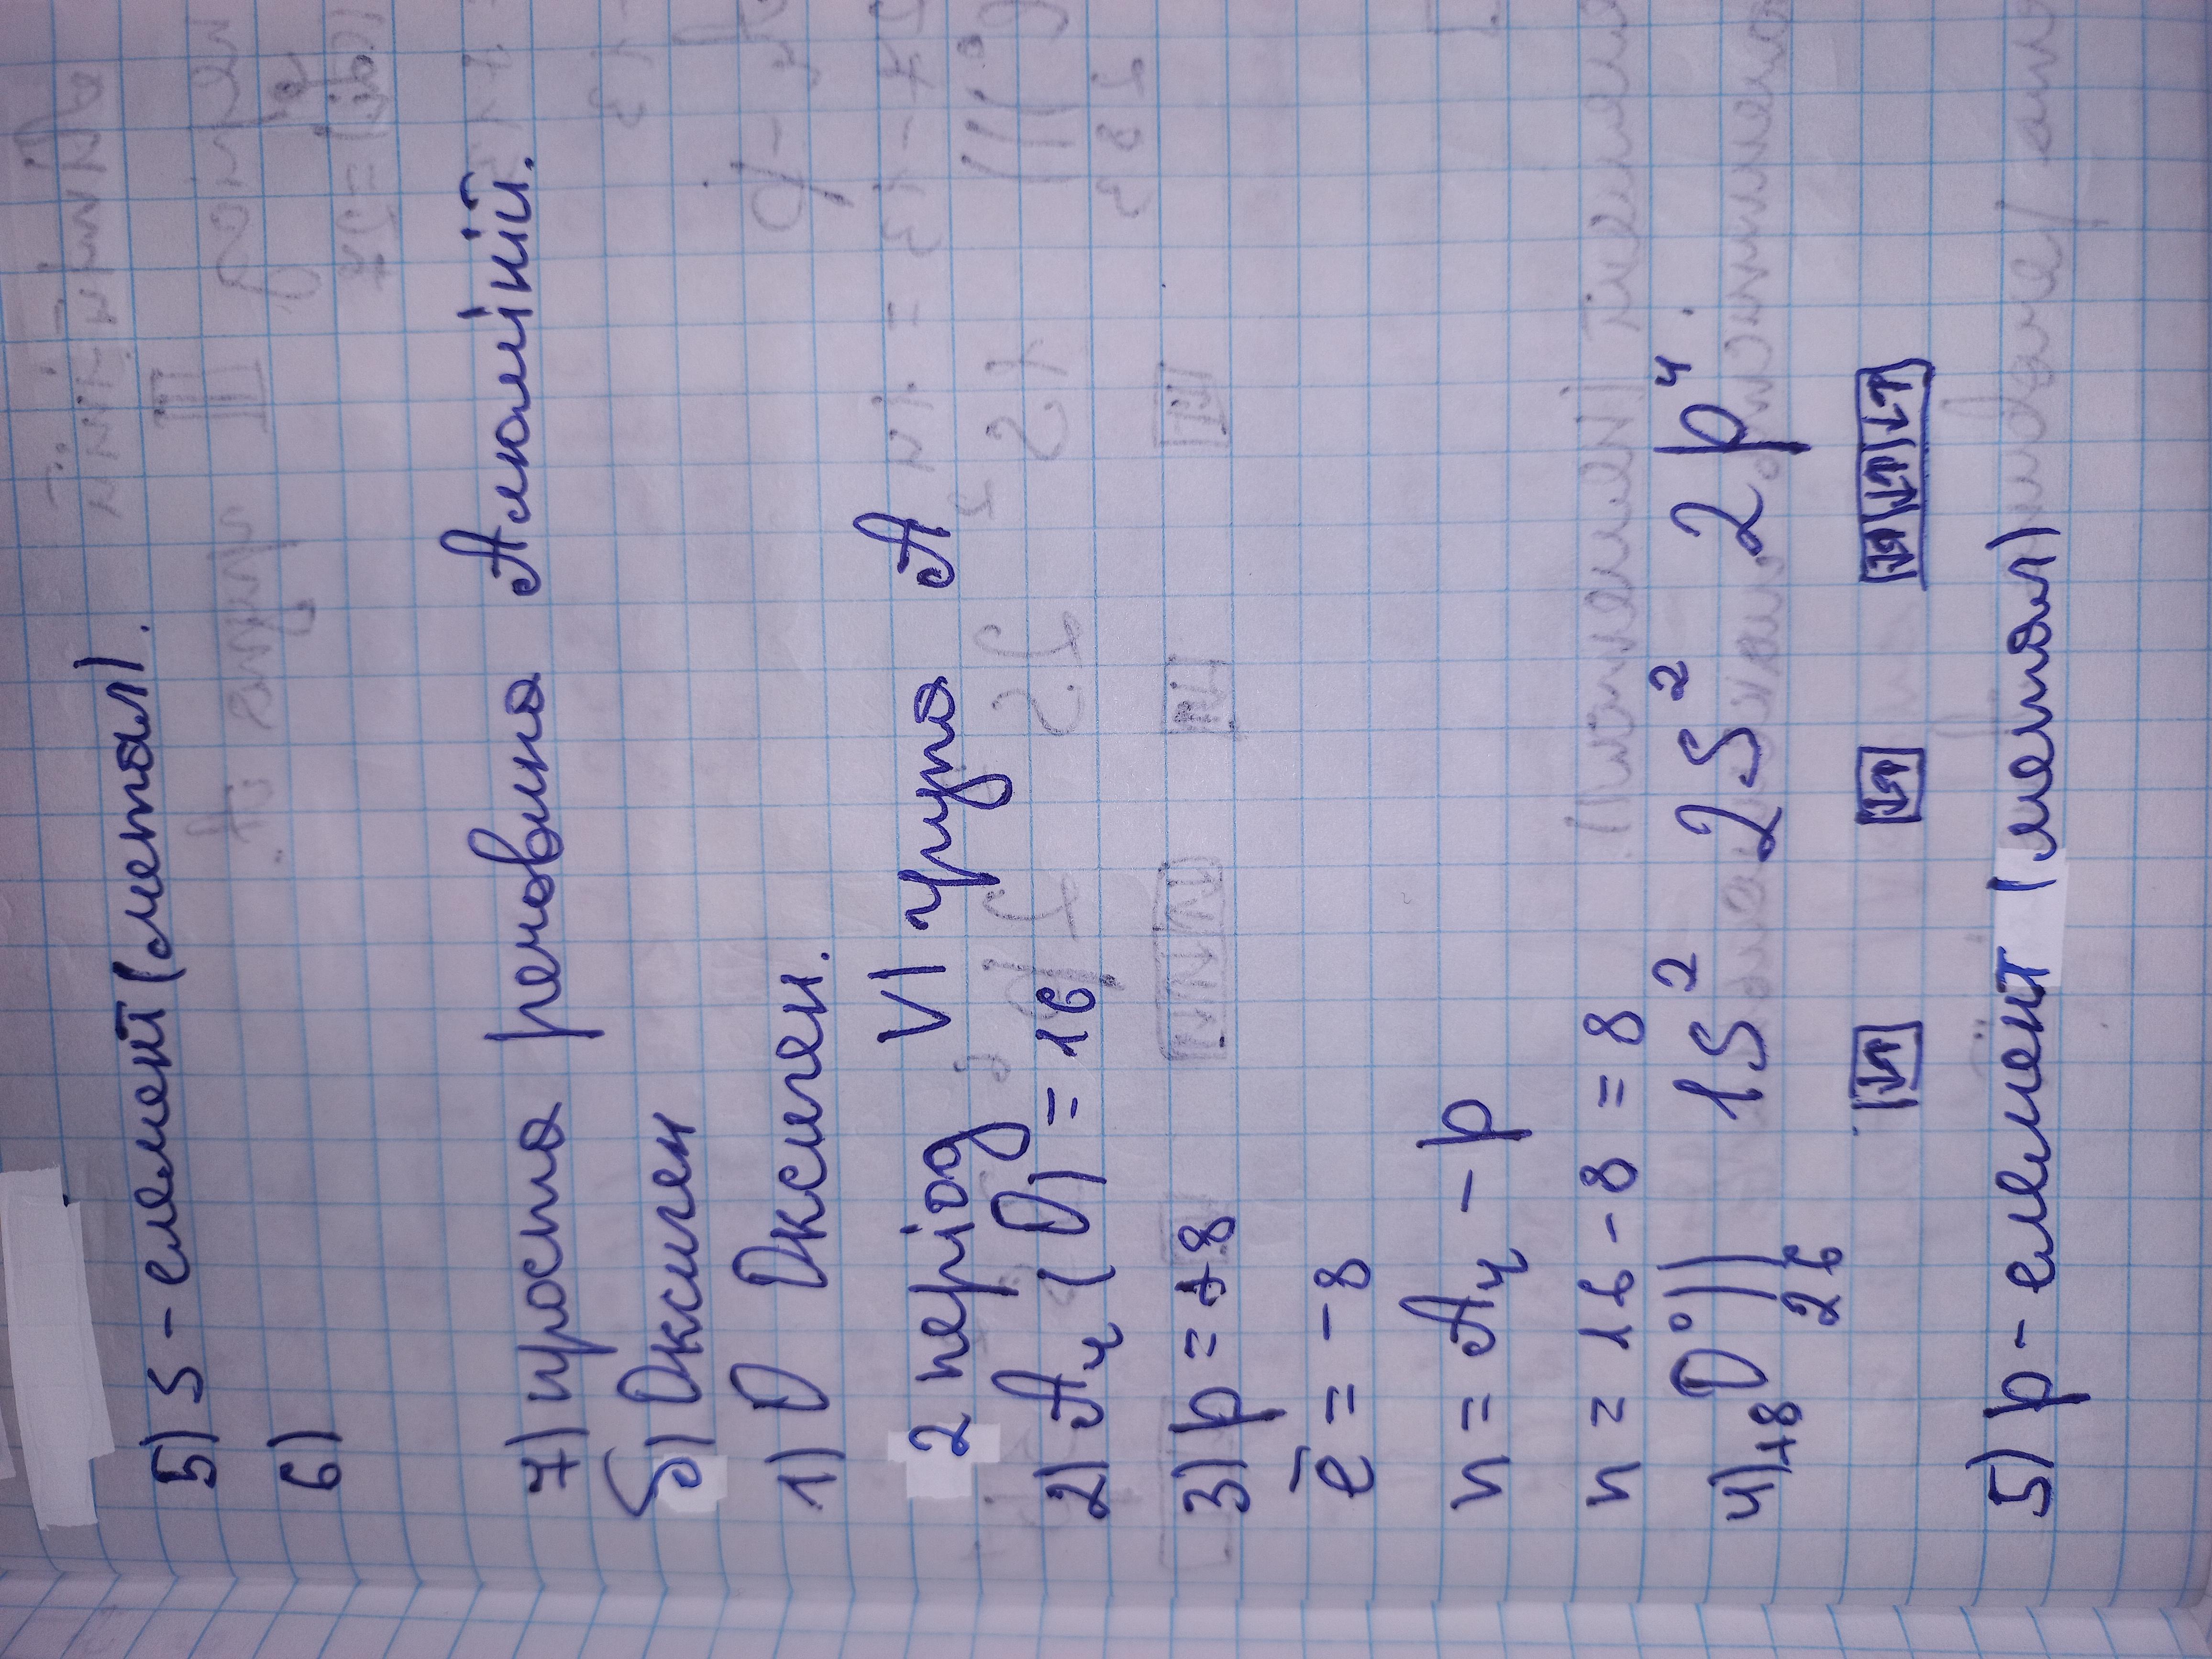 5) s - елемент (метал).
6)
7) проста речовина Алюміній.
б) Оксиген
1) O Оксиген.
2 період VI група А
2) Ar (O) = 16
3) p = +8
ē = -8
n = Ar - p
n = 16 - 8 = 8
4) +8 O ) ) 1s² 2s² 2p⁴.
2 6
5) p - елемент (метал)